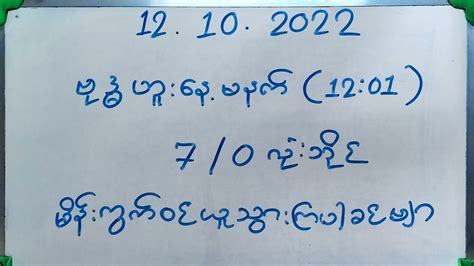 12.10.2022
ဗုဒ္ဓဟူးနေ့ မနက် (12:01)
7/0 လုံးဘိုင်
မိန်းကွက်ဝင်ယူသွားကြပါခင်ဗျာ